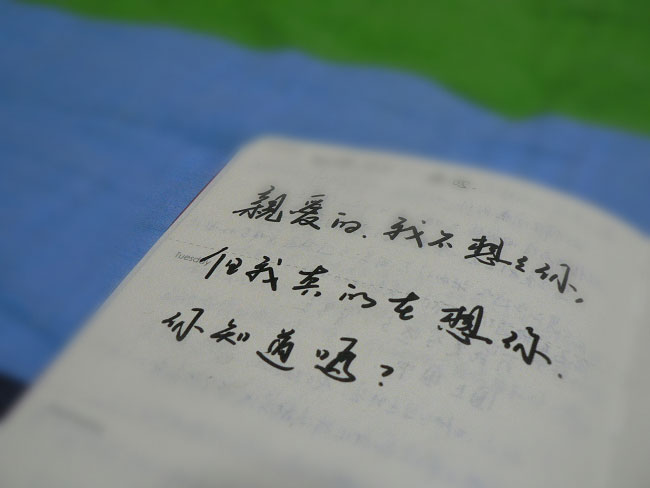 親爱的.我不想〻你,
tuesday
但我真的在想你.
你知道吗?